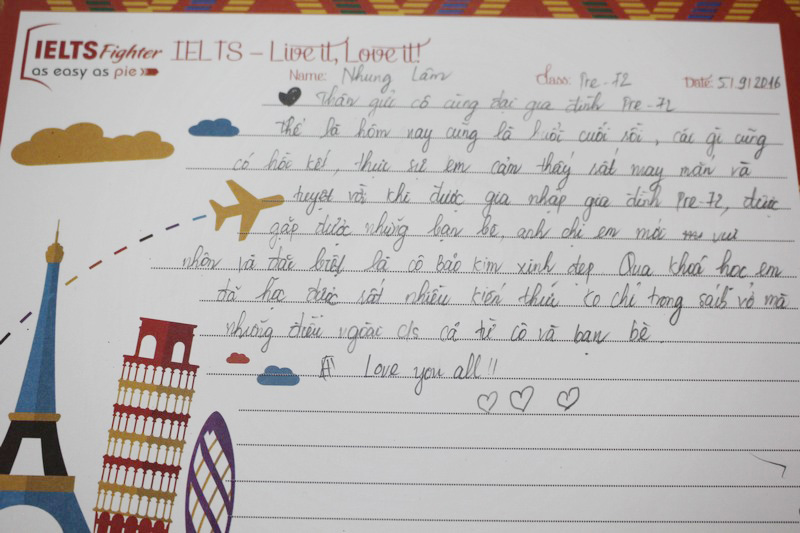 IELTS Fighter IELTS – Live it, Love it!
as easy as pie
Name: Nhung Lâm Class: Pre-72 Date: 5/9/2016
Thân gửi cô cùng đại gia đình Pre-72
Thế là hôm nay cũng là buổi cuối rồi, cái gì cũng
có hồi kết, thực sự em cảm thấy rất may mắn và
tuyệt vời khi được gia nhập gia đình Pre-72, được
gặp được những bạn bè, anh chị em mới vui
nhộn và đặc biệt là cô Bảo Kim xinh đẹp Qua khoá học em
đã học được rất nhiều kiến thức ko chỉ trong sách vở mà
những điều ngoài c/s cả từ cô và bạn bè.
Love you all!!